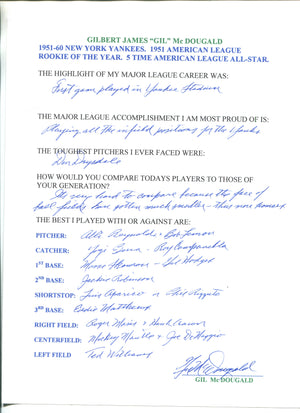 GILBERT JAMES "GIL" Mc DOUGALD
1951-60 NEW YORK YANKEES. 1951 AMERICAN LEAGUE
ROOKIE OF THE YEAR. 5 TIME AMERICAN LEAGUE ALL-STAR.
THE HIGHLIGHT OF MY MAJOR LEAGUE CAREER WAS:
First game played in Yankee Stadium
THE MAJOR LEAGUE ACCOMPLISHMENT I AM MOST PROUD OF IS:
Playing all the infield positions for the Yanks
THE TOUGHEST PITCHERS I EVER FACED WERE:
Don Drysdale
HOW WOULD YOU COMPARE TODAYS PLAYERS TO THOSE OF
YOUR GENERATION?
Its very hard to compare because the size of
ball fields have gotten much smaller - thus more homers.
THE BEST I PLAYED WITH OR AGAINST ARE:
PITCHER: Allie Reynolds & Bob Lemon
CATCHER: Yogi Berra - Roy Campanella
1ST BASE: Moose Skowron - Gil Hodges
2ND BASE: Jackie Robinson
SHORTSTOP: Luis Aparicio or Phil Rizzuto
3RD BASE: Eddie Matthews
RIGHT FIELD: Roger Maris & Hank Aaron
CENTERFIELD: Mickey Mantle & Joe DiMaggio
LEFT FIELD Ted Williams
Gil McDougald
GIL McDOUGALD